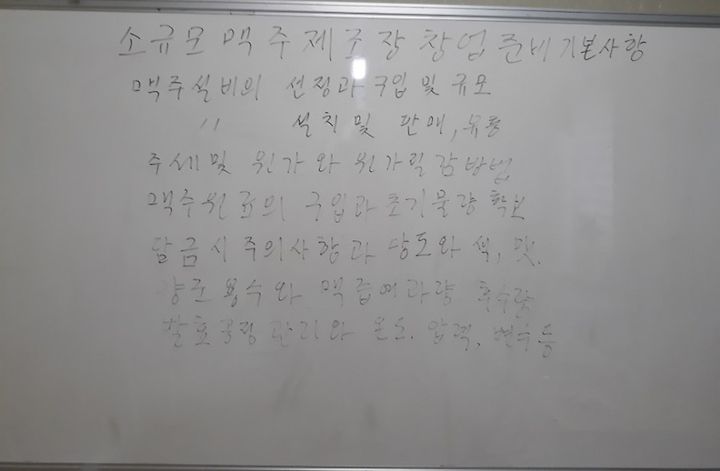 소규모 맥주제조장 창업 준비 기본사항
맥주설비의 선정과 구입 및 규모
〃 설치 및 판매, 유통
주세 및 원가와 원가절감방법
맥주원료의 구입과 초기물량 확보
담금시 주의사항과 당도와 색, 맛.
양조용수와 맥즙여과량
발효공정 관리와 온도, 압력, 변수 등